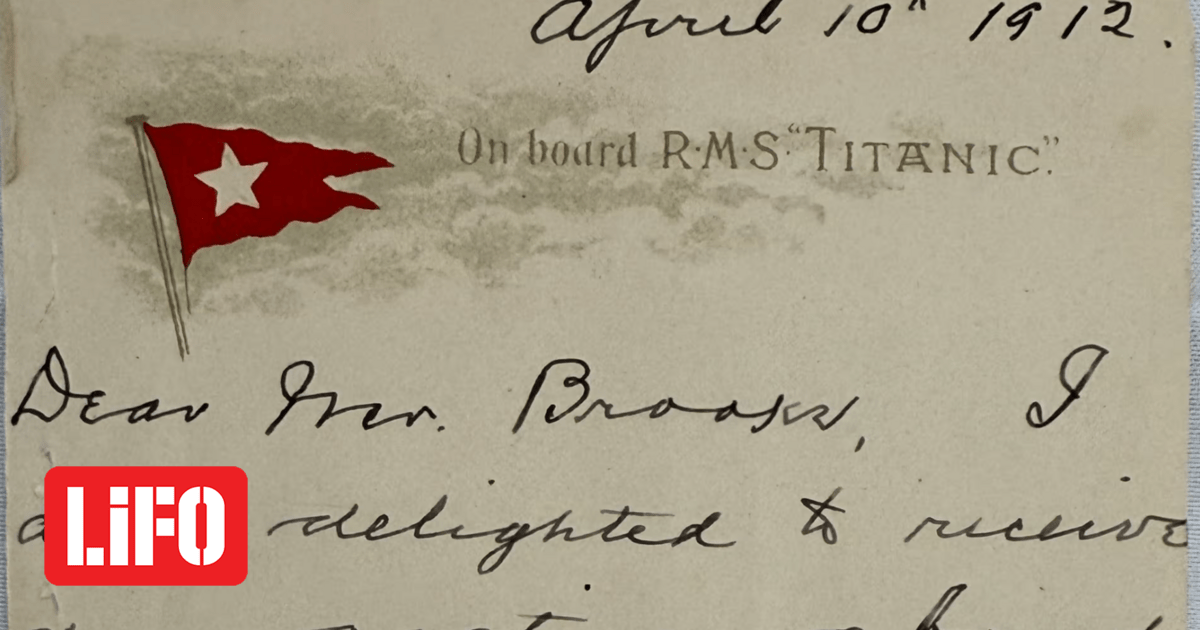 April 10th 1912.
On board R·M·S· "TITANIC."
Dear Mr. Brooks, I
delighted to receive
LiFO